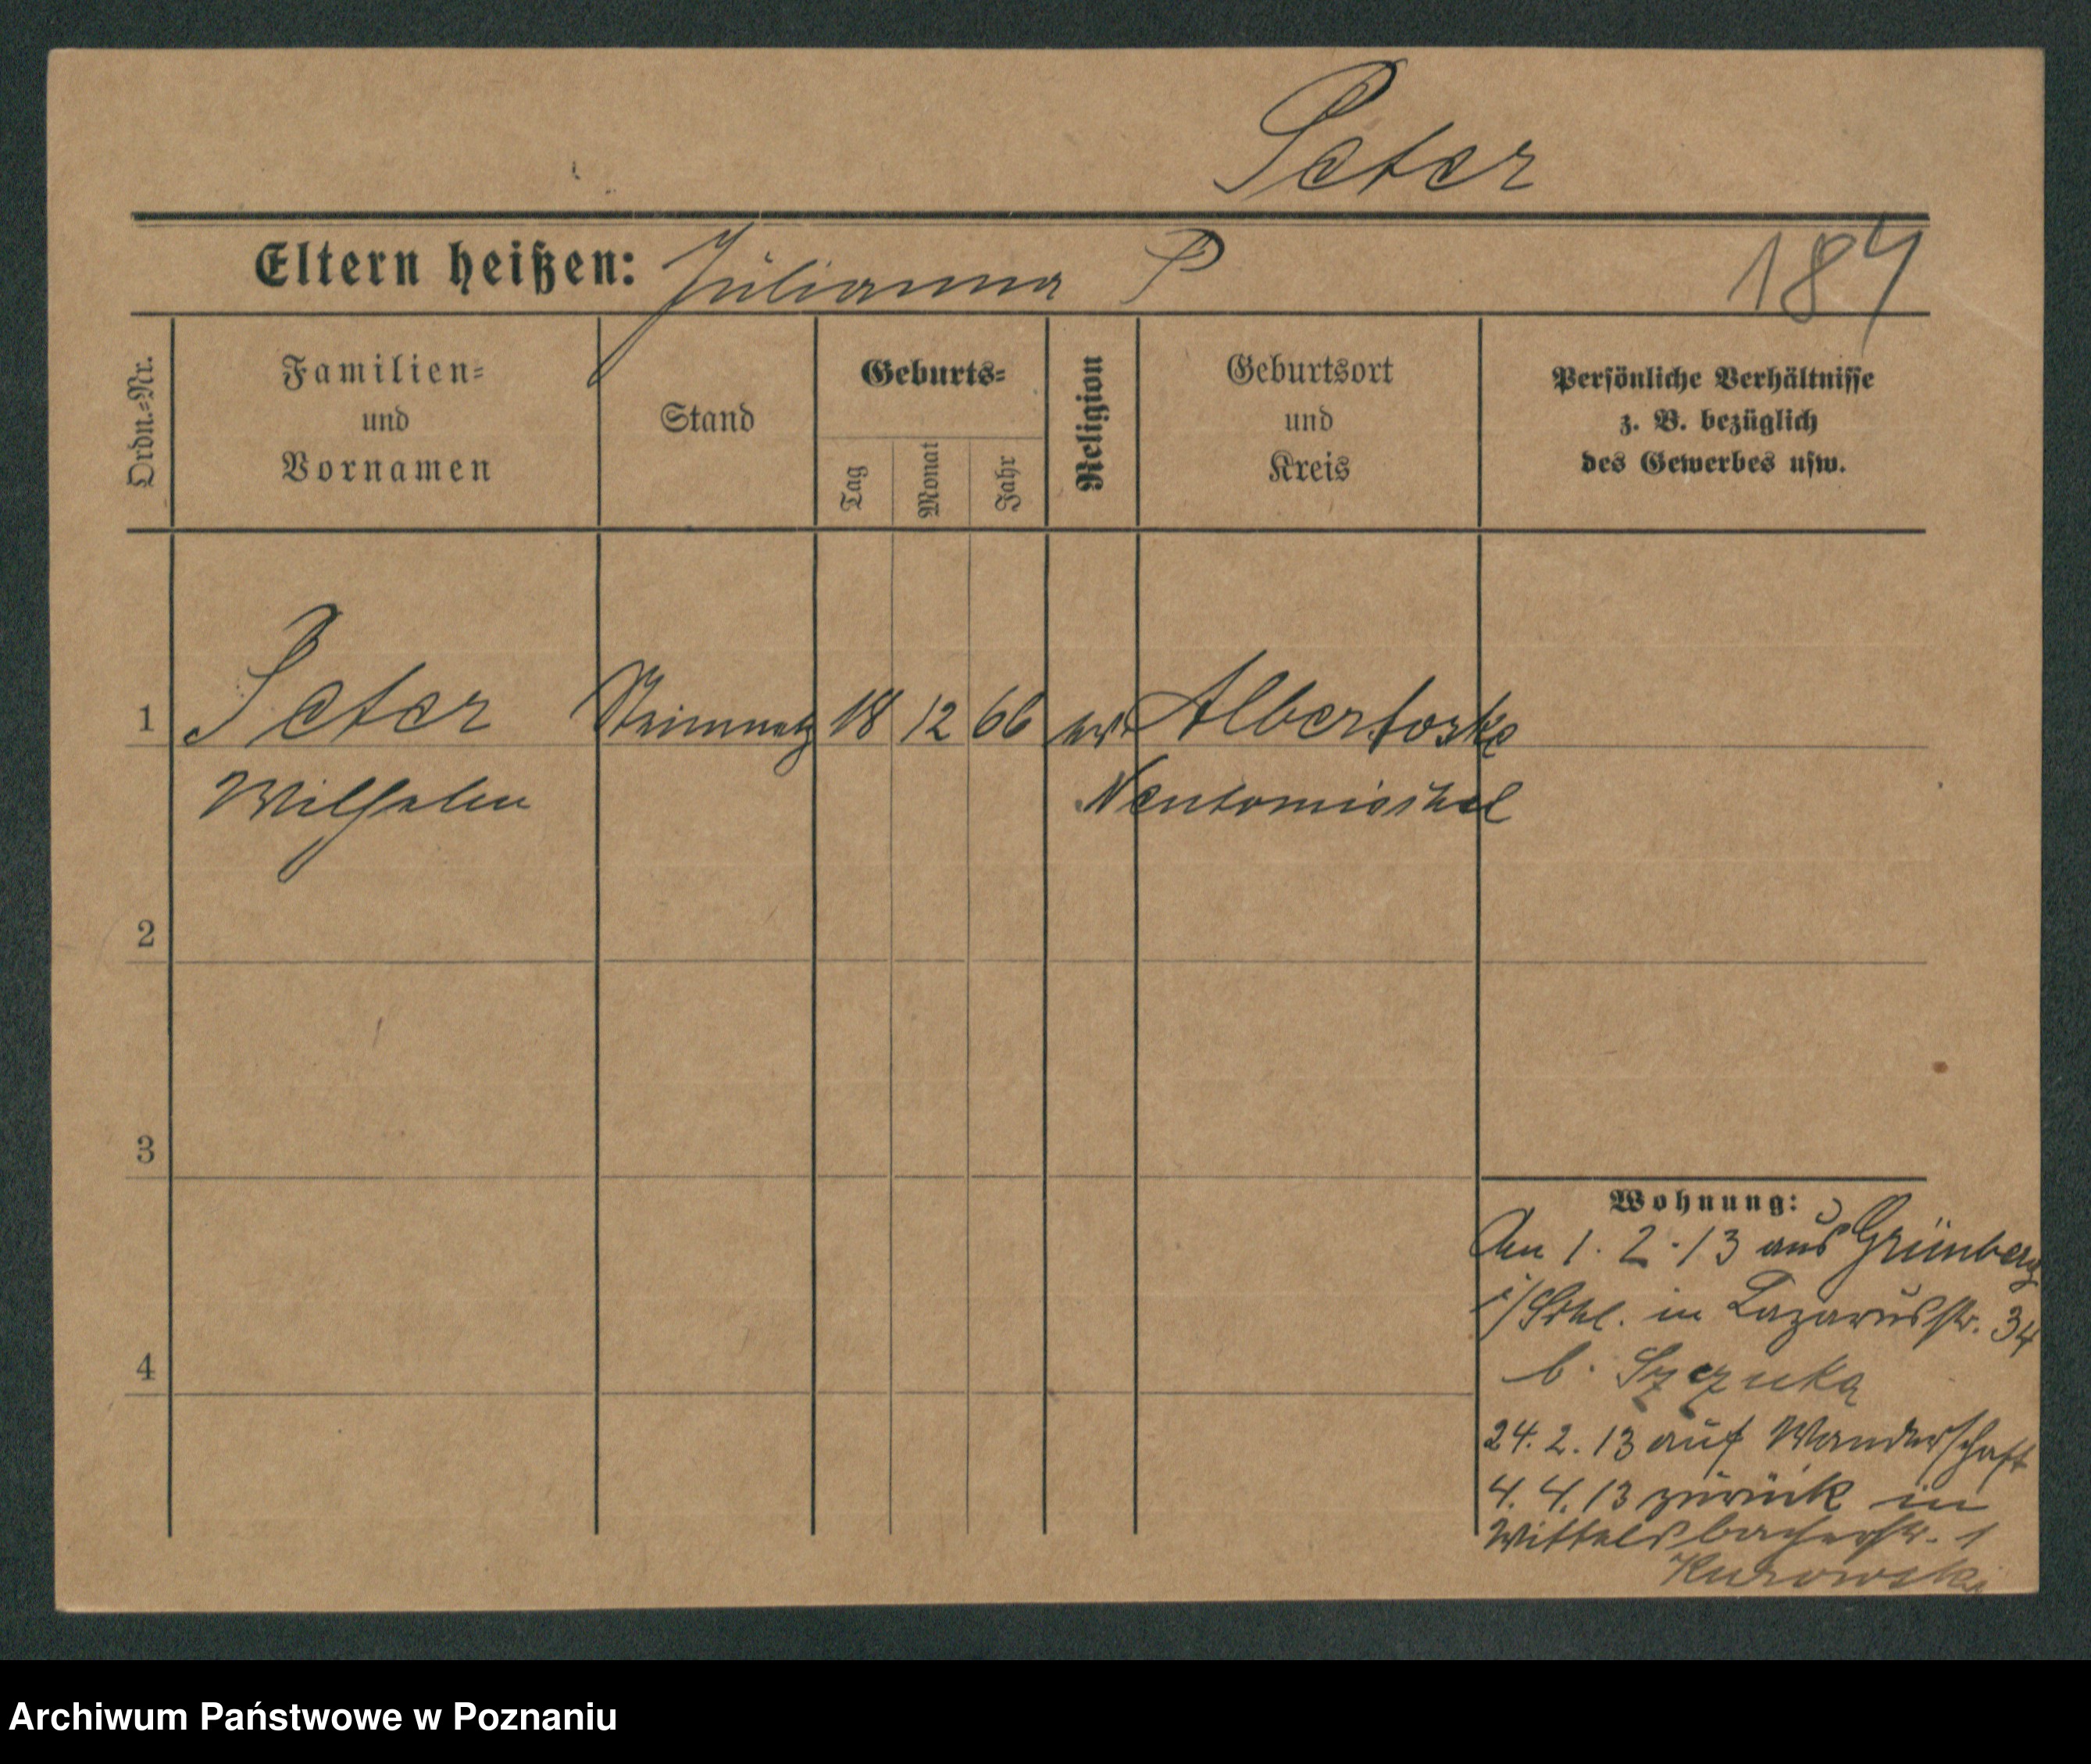 Peter
Eltern heißen: Julianna P
187
Ordn.-Nr.
Familien-
und
Vornamen
Stand
Geburts-
Tag
Monat
Jahr
Religion
Geburtsort
und
Kreis
Persönliche Verhältnisse
z. B. bezüglich
des Gewerbes usw.
1 Peter Steinmetz 18 12 66 ev. Albertoske
Wilhelm Neutomischel
2
3
4
Wohnung:
Am 1.2.13 aus Grünberg
i/Schl. in Lazarusstr. 34
b. Szczuka
24.2.13 auf Wanderschaft
4.4.13 zurück in
Wittelsbacherstr. 1
Kurowski
Archiwum Państwowe w Poznaniu